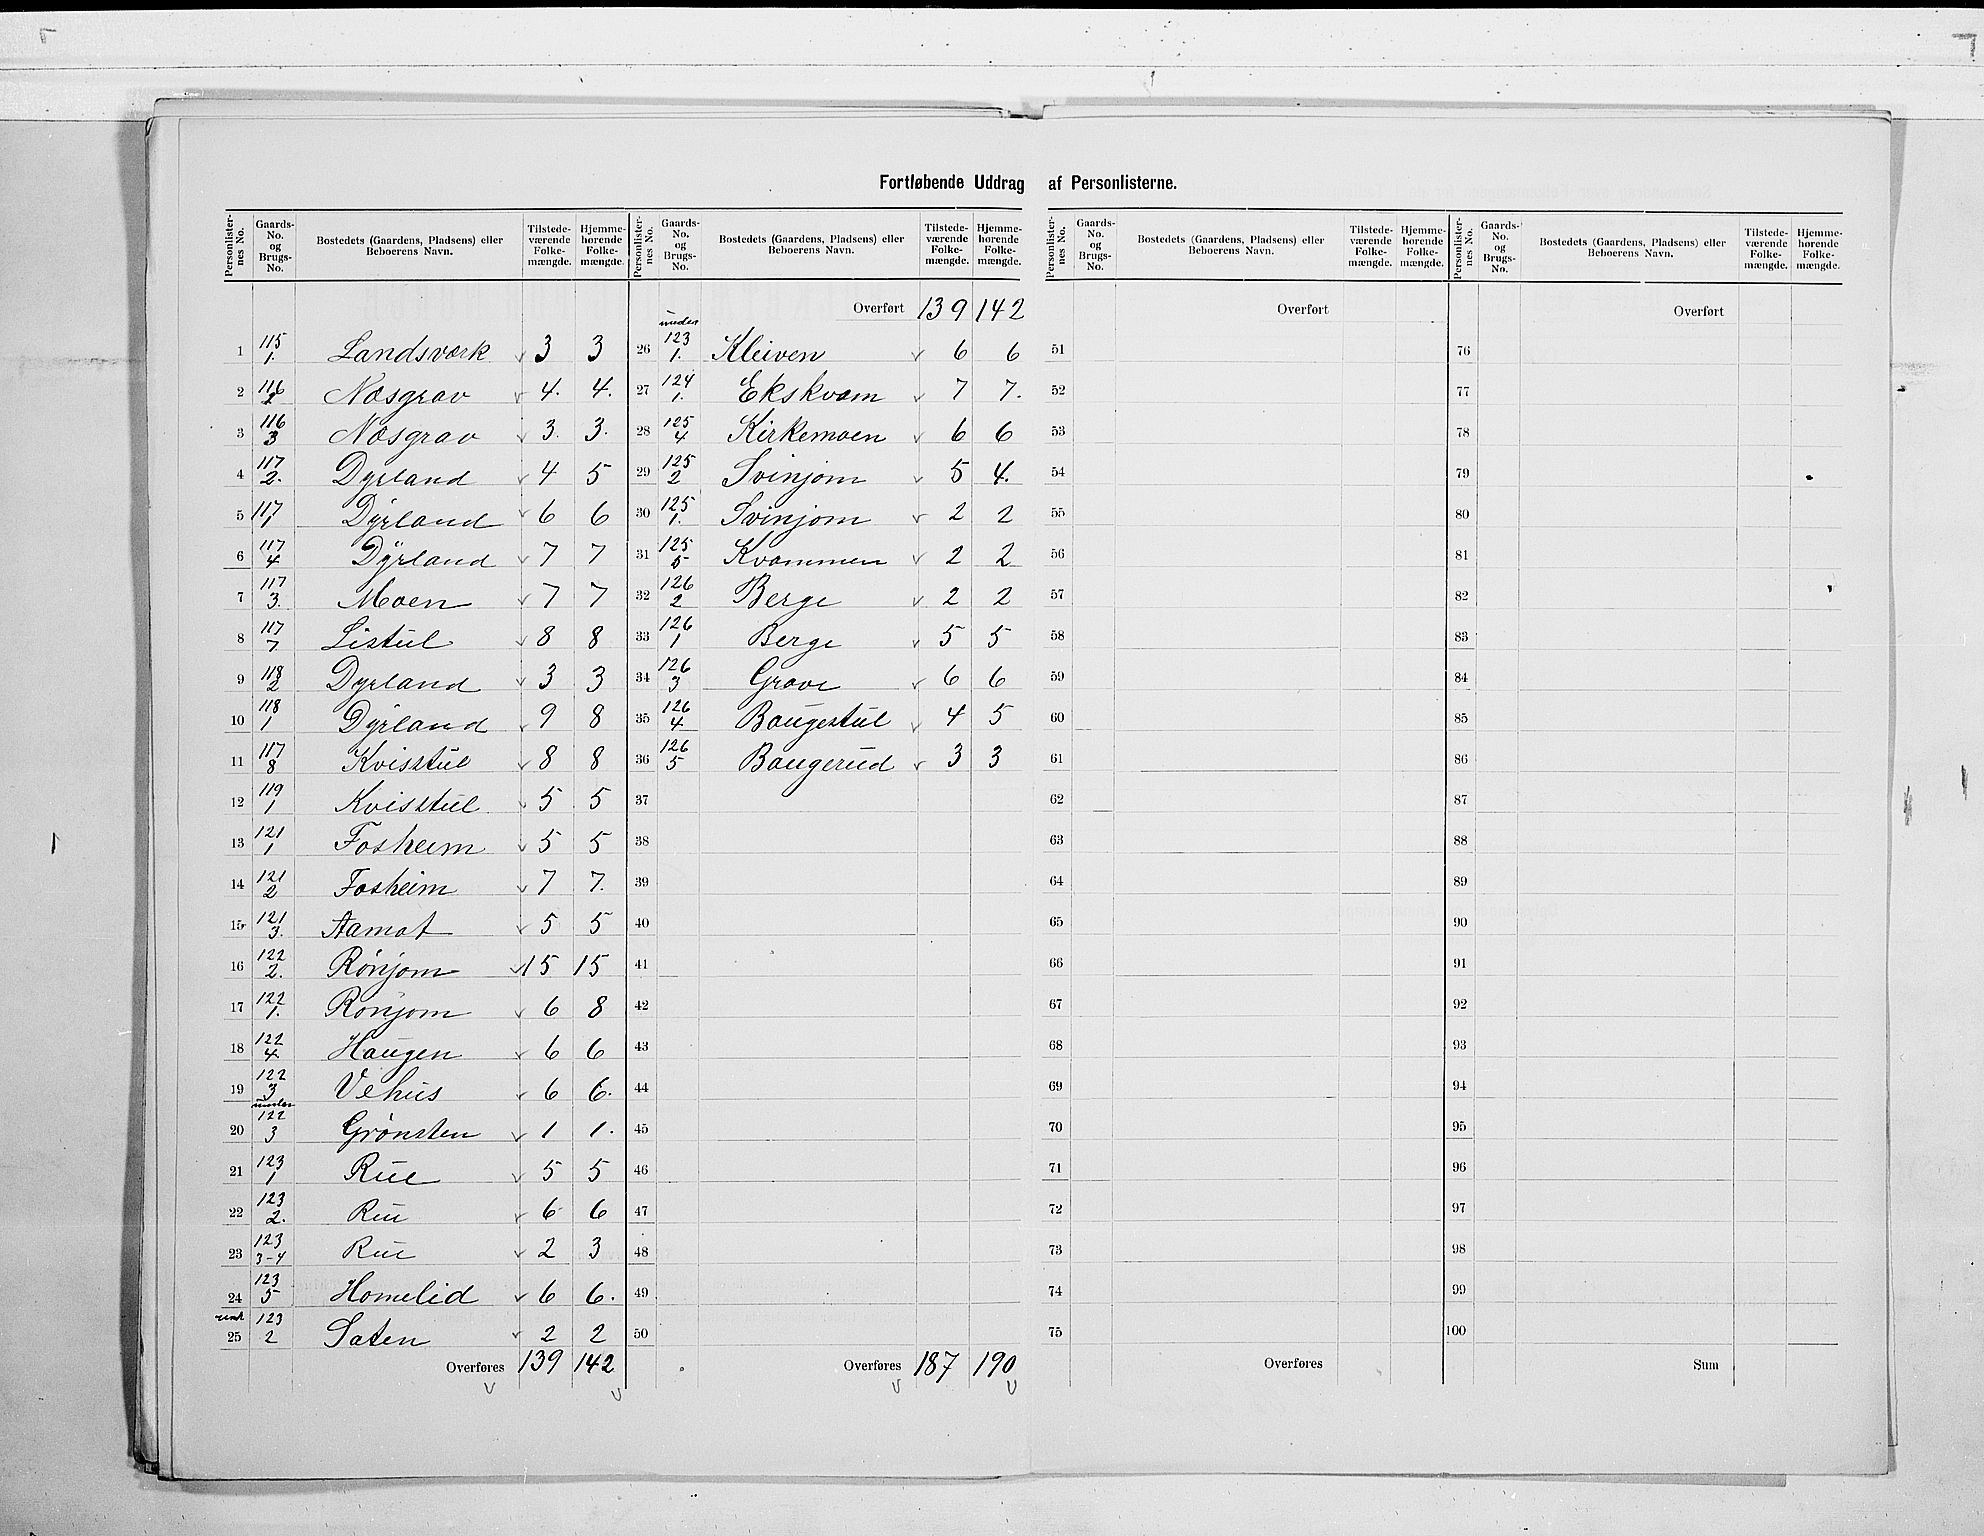 Fortløbende Uddrag af Personlisterne.
Personlister-nes No. | Gaards-No. og Brugs-No. | Bostedets (Gaardens, Pladsens) eller Beboerens Navn. | Tilstede-værende Folke-mængde. | Hjemme-hørende Folke-mængde.
1 115/1. Landsværk 3 3
2 116/2 Næsgrav 4. 4.
3 116/3 Næsgrav 3. 3.
4 117/2. Dyrland 4 5
5 117/1 Dÿrland 6 6
6 117/4 Dÿrland 7 7
7 117/3. Moen 7 7
8 117/7 Listul 8 8
9 118/2 Dyrland 3 3
10 118/1 Dÿrland 9 8
11 117/8 Kvisstul 8 8
12 119/1 Kvisstul 5 5
13 121/1 Fosheim 5 5
14 121/2 Fosheim 7 7.
15 121/3. Aamot 5 5
16 122/2. Rønjom 15 15
17 122/1. Rønjom 6 8
18 122/4 Haugen 6 6
19 122/3 Vehus 6 6.
20 under 122/3 Grønsten 1 1.
21 123/1 Rue 5 5
22 123/2. Rue 6 6
23 123/3-4 Rue 2 3
24 123/5 Homelid 6 6.
25 und 123/2 Saten 2 2
Overføres 139 142
Personlister-nes No. | Gaards-No. og Brugs-No. | Bostedets (Gaardens, Pladsens) eller Beboerens Navn. | Tilstede-værende Folke-mængde. | Hjemme-hørende Folke-mængde.
Overført 139 142
26 under 123/1. Kleiven 6 6
27 124/1. Ekskvam 7 7.
28 125/4 Kirkemoen 6 6
29 125/2 Svinjom 5 4.
30 125/1. Svinjom 2 2
31 125/5 Kvammen 2 2
32 126/2 Berge 2 2
33 126/1 Berge 5 5
34 126/3 Grave 6 6
35 126/4 Baugestul 4 5
36 126/5 Baugerud 3 3
37
38
39
40
41
42
43
44
45
46
47
48
49
50
Overføres 187 190
Personlister-nes No. | Gaards-No. og Brugs-No. | Bostedets (Gaardens, Pladsens) eller Beboerens Navn. | Tilstede-værende Folke-mængde. | Hjemme-hørende Folke-mængde.
Overført
51
52
53
54
55
56
57
58
59
60
61
62
63
64
65
66
67
68
69
70
71
72
73
74
75
Overføres
Personlister-nes No. | Gaards-No. og Brugs-No. | Bostedets (Gaardens, Pladsens) eller Beboerens Navn. | Tilstede-værende Folke-mængde. | Hjemme-hørende Folke-mængde.
Overført
76
77
78
79
80
81
82
83
84
85
86
87
88
89
90
91
92
93
94
95
96
97
98
99
100
Sum